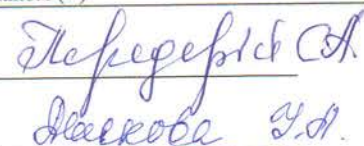 Передерій С.А.
Маскова У.А.